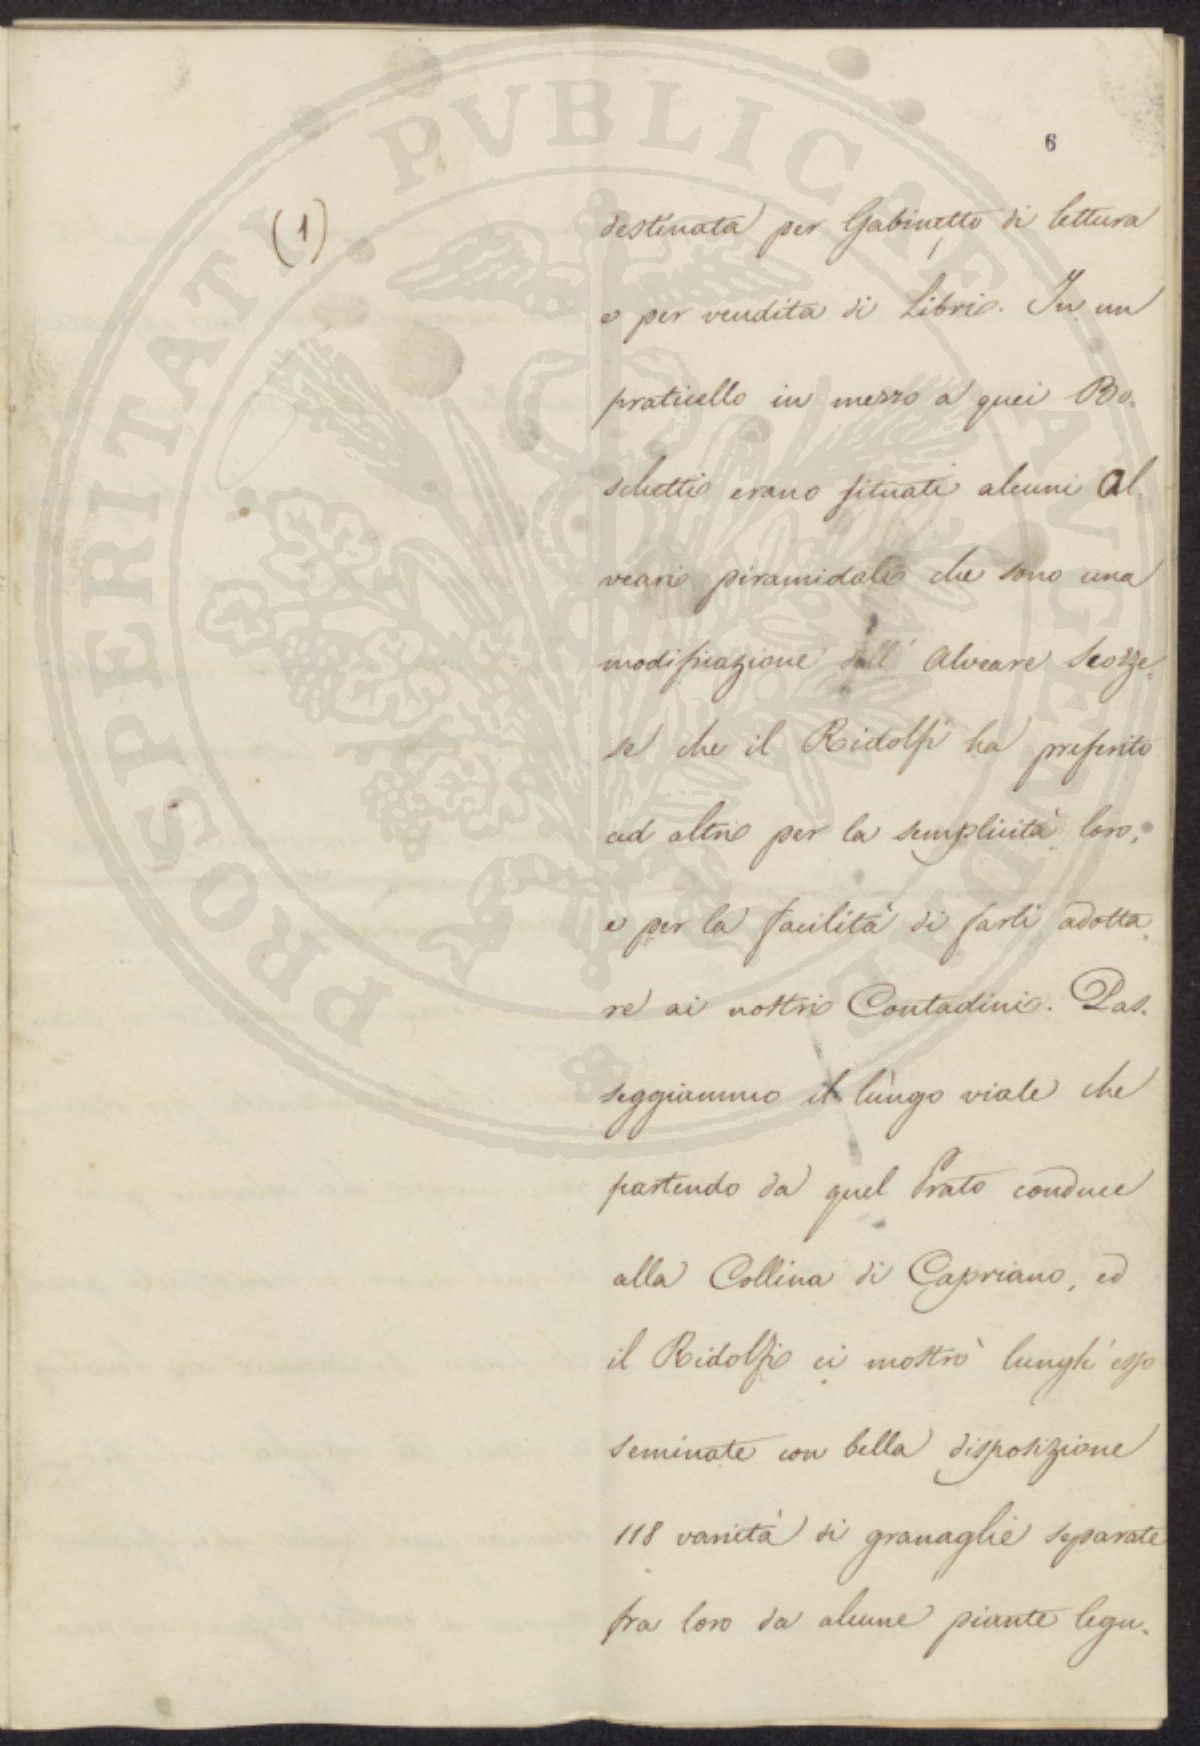 6
(1)
destinata per Gabinetto di lettura
e per vendita di Libri. In un
praticello in mezzo a quei Bo-
schetti erano situati alcuni Al-
veari piramidali che sono una
modificazione dell' Alveare Scozze-
se che il Ridolfi ha preferito
ad altri per la semplicità loro,
e per la facilità di farli adotta-
re ai nostri Contadini. Pas-
seggiammo il lungo viale che
partendo da quel Prato conduce
alla Collina di Capriano, ed
il Ridolfi ci mostrò lungh' esso
seminate con bella disposizione
118 varietà di granaglie separate
fra loro da alcune piante legu-
PROSPERITATI PVBLICAE AVGENDAE